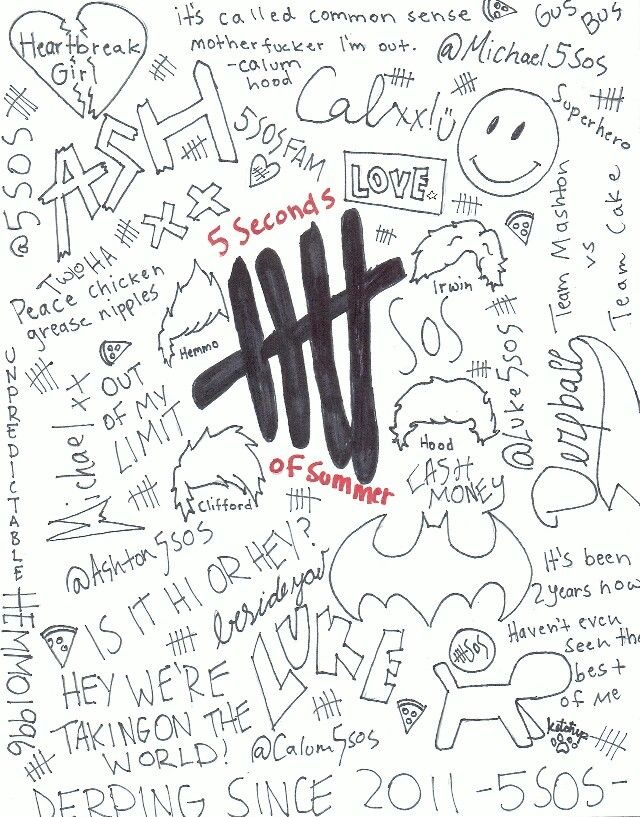 it's called common sense
motherfucker I'm out.
-calum
hood
GUS
BUS
Heartbreak
Girl
@Michael5sos
Calxx!ü
Superhero
@5SOS
ASH
xx
5SOSFAM
LOVE
5 Seconds
of Summer
TWLOHA
Peace chicken
grease nipples
Hemmo
Irwin
SOS
Team Mashton
vs
Team Cake
UNPREDICTABLE
Michael xx
OUT
OF MY
LIMIT
@Luke5sos
Derpball
Hood
Clifford
CASH
MONEY
@Ashton5SOS
IS IT HI OR HEY?
beside you
It's been
2 years now
Haven't even
seen the
best
of me
HEMMO1996
LUKE
SOS
HEY WE'RE
TAKING ON THE
WORLD!
@Calum5sos
ketchup
DERPING SINCE 2011 -5SOS-